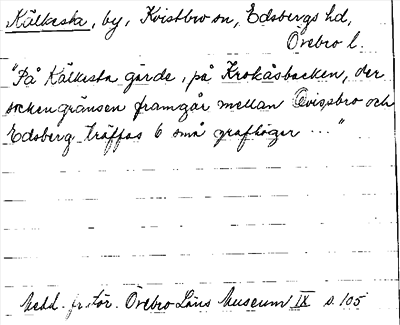 Kälkesta, by, Kvistbro sn, Edsbergs hd,
Örebro l.
"På Kälkesta gärde, på Krokåsbacken, der
sockengränsen framgår mellan Qvistbro och
Edsberg träffas 6 små grafhögar ..."
Medd. fr. för. Örebro Läns Museum IX s. 105